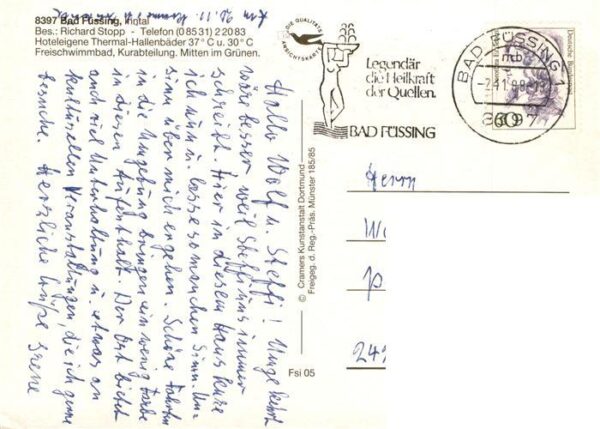 8397 Bad Füssing, Inntal
Bes.: Richard Stopp - Telefon (08531) 22083
Hoteleigene Thermal-Hallenbäder 37° C u. 30° C
Freischwimmbad, Kurabteilung. Mitten im Grünen.
DIE QUALITÄTS
ANSICHTSKARTE
Legendär
die Heilkraft
der Quellen.
BAD FÜSSING
BAD FÜSSING 1
mb
8397
Deutsche Bundespost
60
Hallo Wolf u. Steffi! Umgekehrt
wäre besser weil Steffi uns immer
schreibt. Hier in diesem Haus kure
ich nun u. lasse so manchen
sinn über mich ergehen. Schöne Fahrten
in die Umgebung bringen ein wenig Farbe
in diesen Aufenthalt. Der Ort bietet
auch viel Unterhaltung u. etwas an
kulturellen Veranstaltungen, die ich gerne
besuche. Herzliche Grüße Irene
© Cramers Kunstanstalt Dortmund
Freigeg. d. Reg.-Präs. Münster 185/85
Fsi 05
Herrn